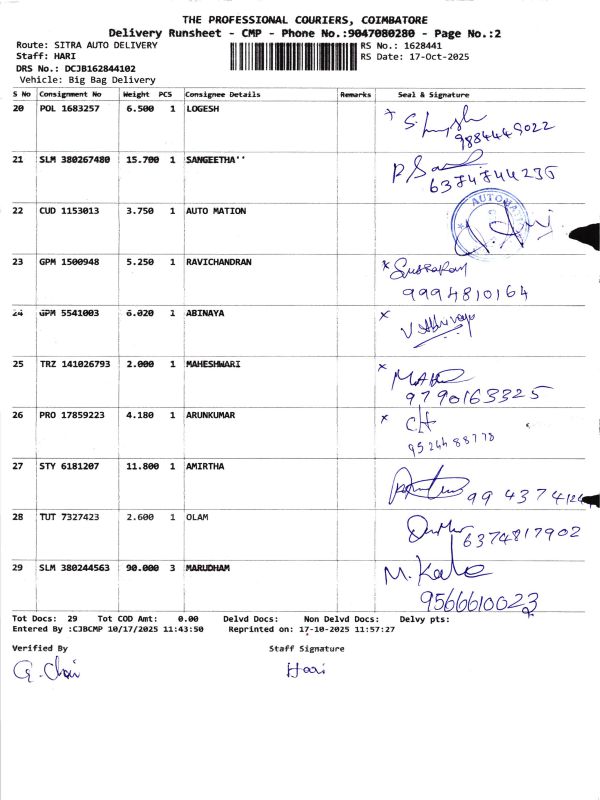 THE PROFESSIONAL COURIERS, COIMBATORE
Delivery Runsheet - CMP - Phone No.:9047080280 - Page No.:2
Route: SITRA AUTO DELIVERY RS No.: 1628441
Staff: HARI RS Date: 17-Oct-2025
DRS No.: DCJB162844102
Vehicle: Big Bag Delivery
S No Consignment No Weight PCS Consignee Details Remarks Seal & Signature
20 POL 1683257 6.500 1 LOGESH
9884449022
21 SLM 380267480 15.700 1 SANGEETHA''
6374744235
22 CUD 1153013 3.750 1 AUTO MATION
23 GPM 1500948 5.250 1 RAVICHANDRAN
9994810164
24 GPM 5541003 6.020 1 ABINAYA
25 TRZ 141026793 2.000 1 MAHESHWARI
9790163325
26 PRO 17859223 4.180 1 ARUNKUMAR
CH
27 STY 6181207 11.800 1 AMIRTHA
28 TUT 7327423 2.600 1 OLAM
6374817902
29 SLM 380244563 90.000 3 MARUDHAM
M. Kala
9566610023
Tot Docs: 29 Tot COD Amt: 0.00 Delvd Docs: Non Delvd Docs: Delvy pts:
Entered By :CJBCMP 10/17/2025 11:43:50 Reprinted on: 17-10-2025 11:57:27
Verified By Staff Signature
Hari